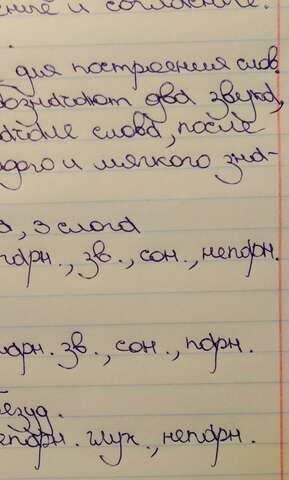 и согласные.
для построения слов.
обозначают два звука,
начале слова, после
и мягкого зна-
, 3 слога
парн., зв., сон., непарн.
парн. зв., сон., парн.
безуд.
непарн. глух., непарн.